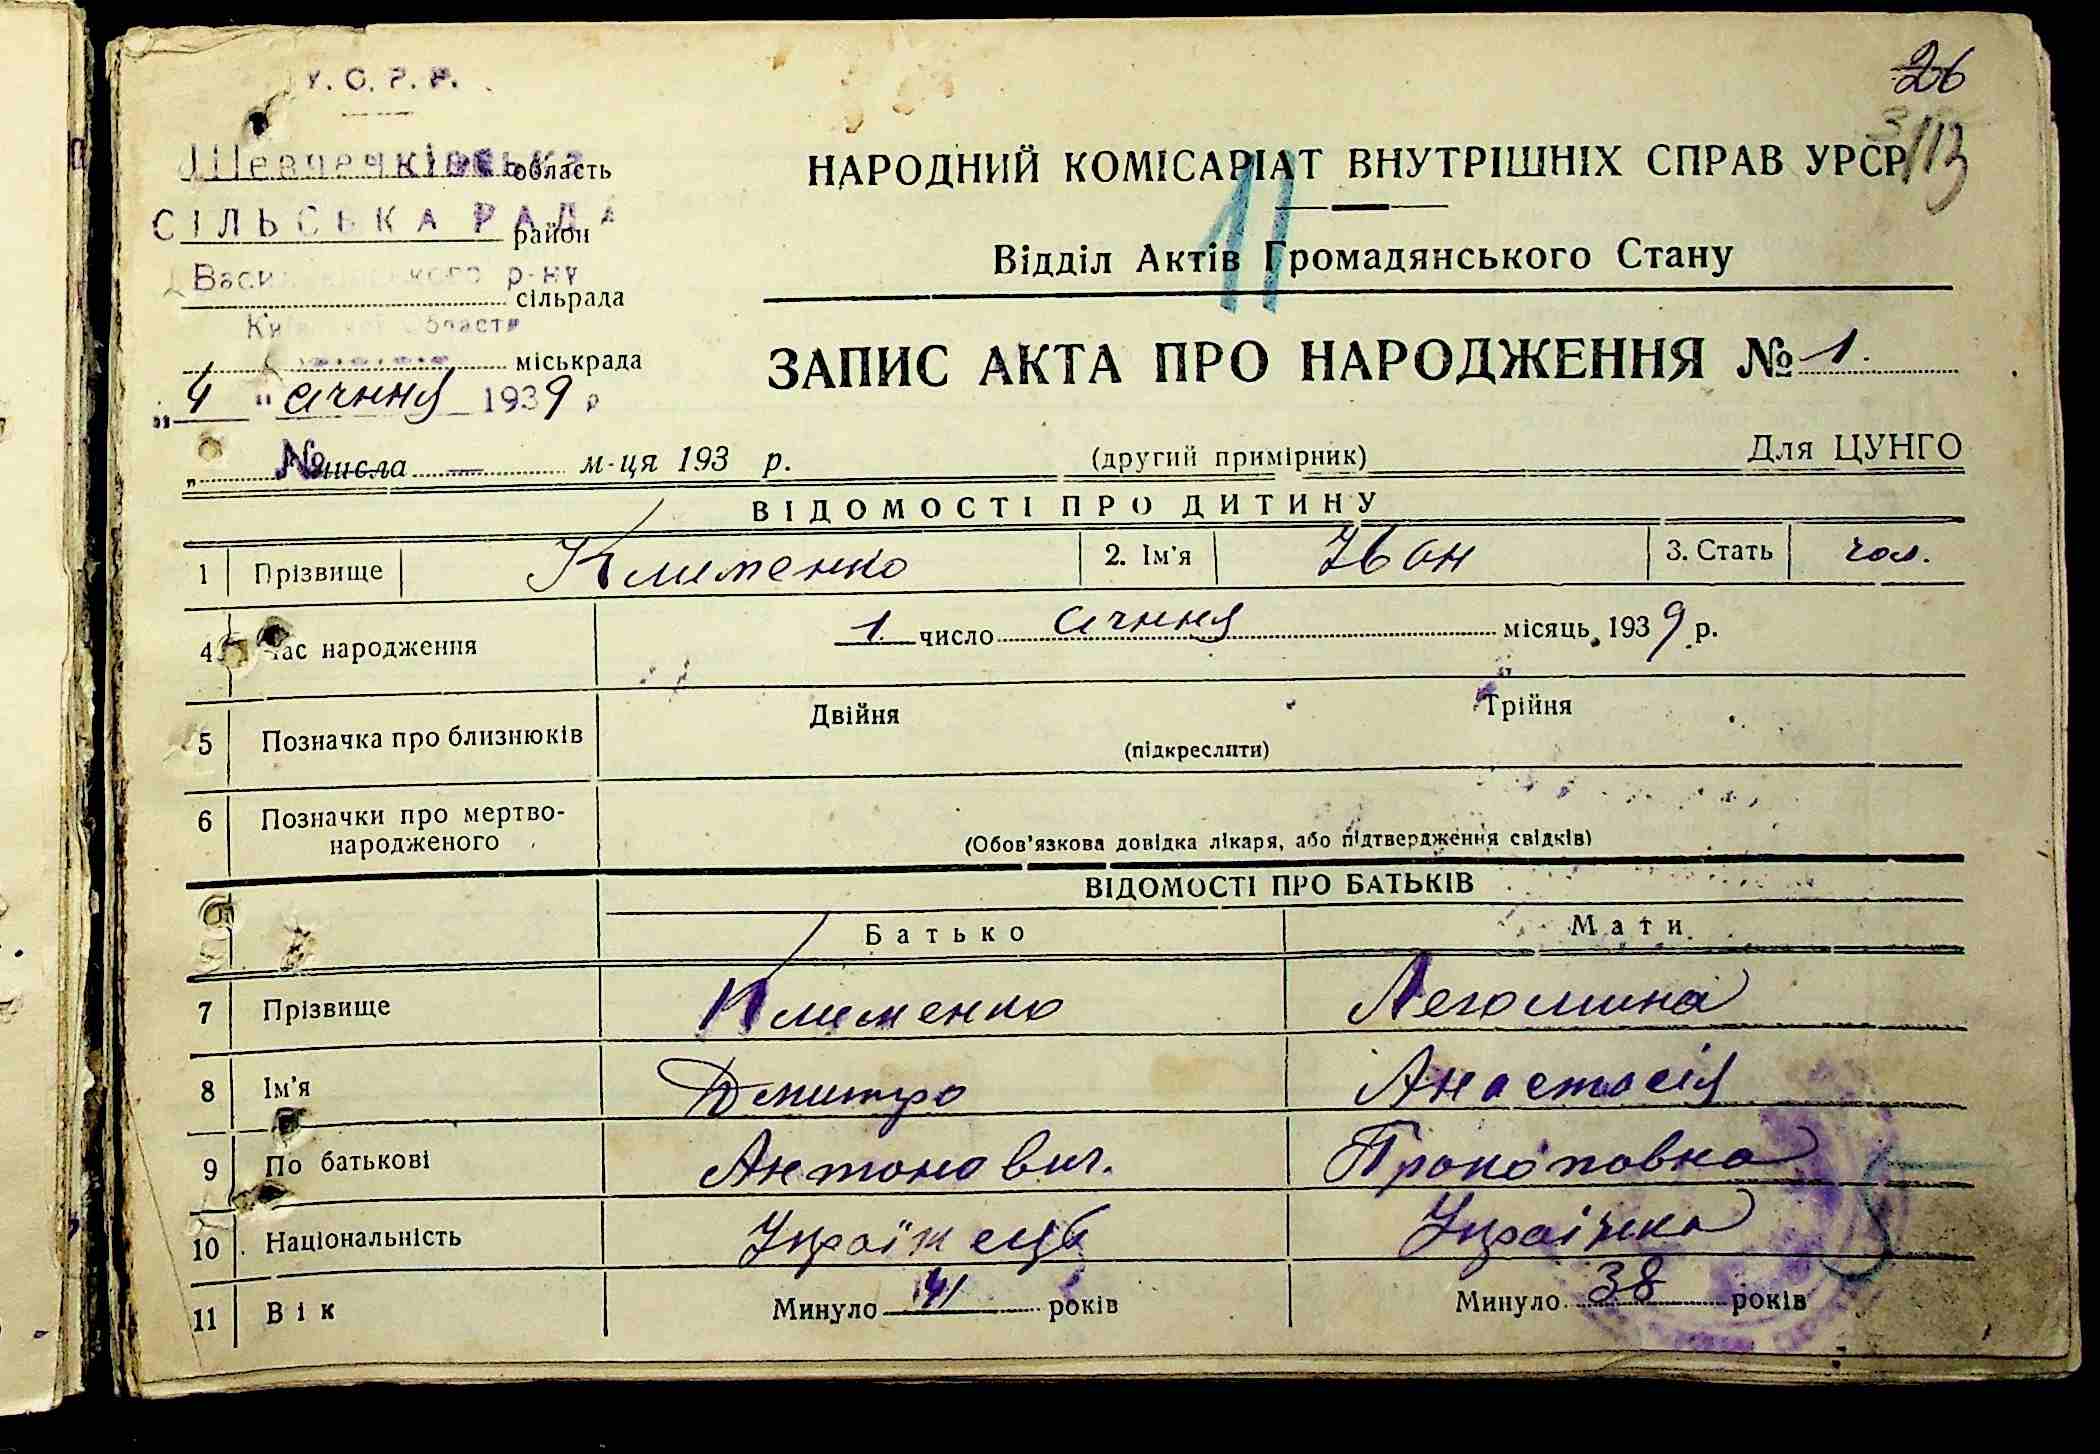 У. С. Р. Р.
26
113
Шевченківська область
СІЛЬСЬКА РАДА район
Васильківського р-ну
сільрада
Київської Області
міськрада
„4" січня 1939 р
№
„ числа — м-ця 193 р.
НАРОДНИЙ КОМІСАРІАТ ВНУТРІШНІХ СПРАВ УРСР
11
Відділ Актів Громадянського Стану
ЗАПИС АКТА ПРО НАРОДЖЕННЯ № 1.
(другий примірник)
Для ЦУНГО
ВІДОМОСТІ ПРО ДИТИНУ
1 Прізвище Клименко 2. Ім'я Іван 3. Стать чол.
4 Час народження 1 число січння місяць 1939 р.
5 Позначка про близнюків Двійня Трійня
(підкреслити)
6 Позначки про мертво-
народженого (Обов'язкова довідка лікаря, або підтвердження свідків)
ВІДОМОСТІ ПРО БАТЬКІВ
Батько Мати
7 Прізвище Клименко
8 Ім'я Дмитро Анастасія
9 По батькові Антонович. Прокоповна
10 Національність Українець Українка
11 Вік Минуло 41 років Минуло 38 років